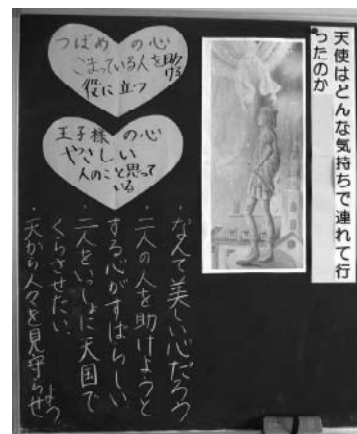 天使はどんな気持ちで連れて行
ったのか
つばめ の心
こまっている人を助ける
役に立つ
王子様 の心
やさしい
人のこと思って
いる
・なんて美しい心だろう
・二人の人を助けようと
する心がすばらしい
・二人をいっしょに天国で
くらさせたい。
・天から人々を見守らせ
よう